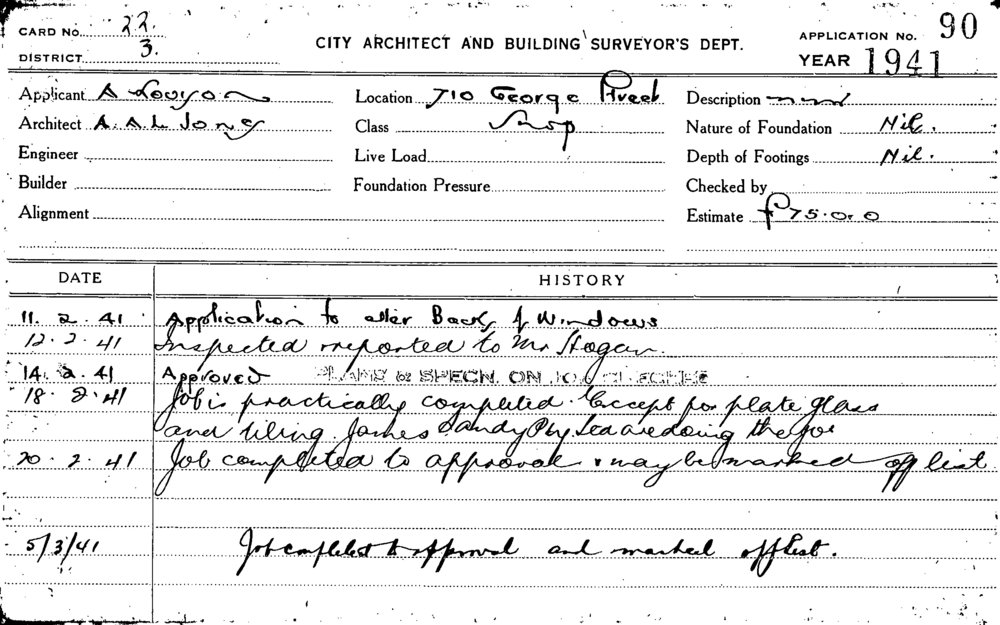 CARD NO. 22.
DISTRICT 3.
CITY ARCHITECT AND BUILDING SURVEYOR'S DEPT.
APPLICATION No. 90
YEAR 1941
Applicant A Louison
Architect A. A. L Jong
Engineer
Builder
Alignment
Location 710 George Street
Class Shop
Live Load
Foundation Pressure
Description
Nature of Foundation Nil.
Depth of Footings Nil.
Checked by
Estimate £75.0.0
DATE HISTORY
11. 2. 41 Application to alter Backs of Windows
12. 2. 41 Inspected & reported to Mr Hogan.
14. 2. 41 Approved PLANS & SPECN. ON
18. 2. 41 Job is practically completed. Except for plate glass
and tiling. James Sandy Pty Ltd are doing the job
20. 2. 41 Job completed to approval & may be marked off list
5/3/41 Job completed to approval and marked off list.